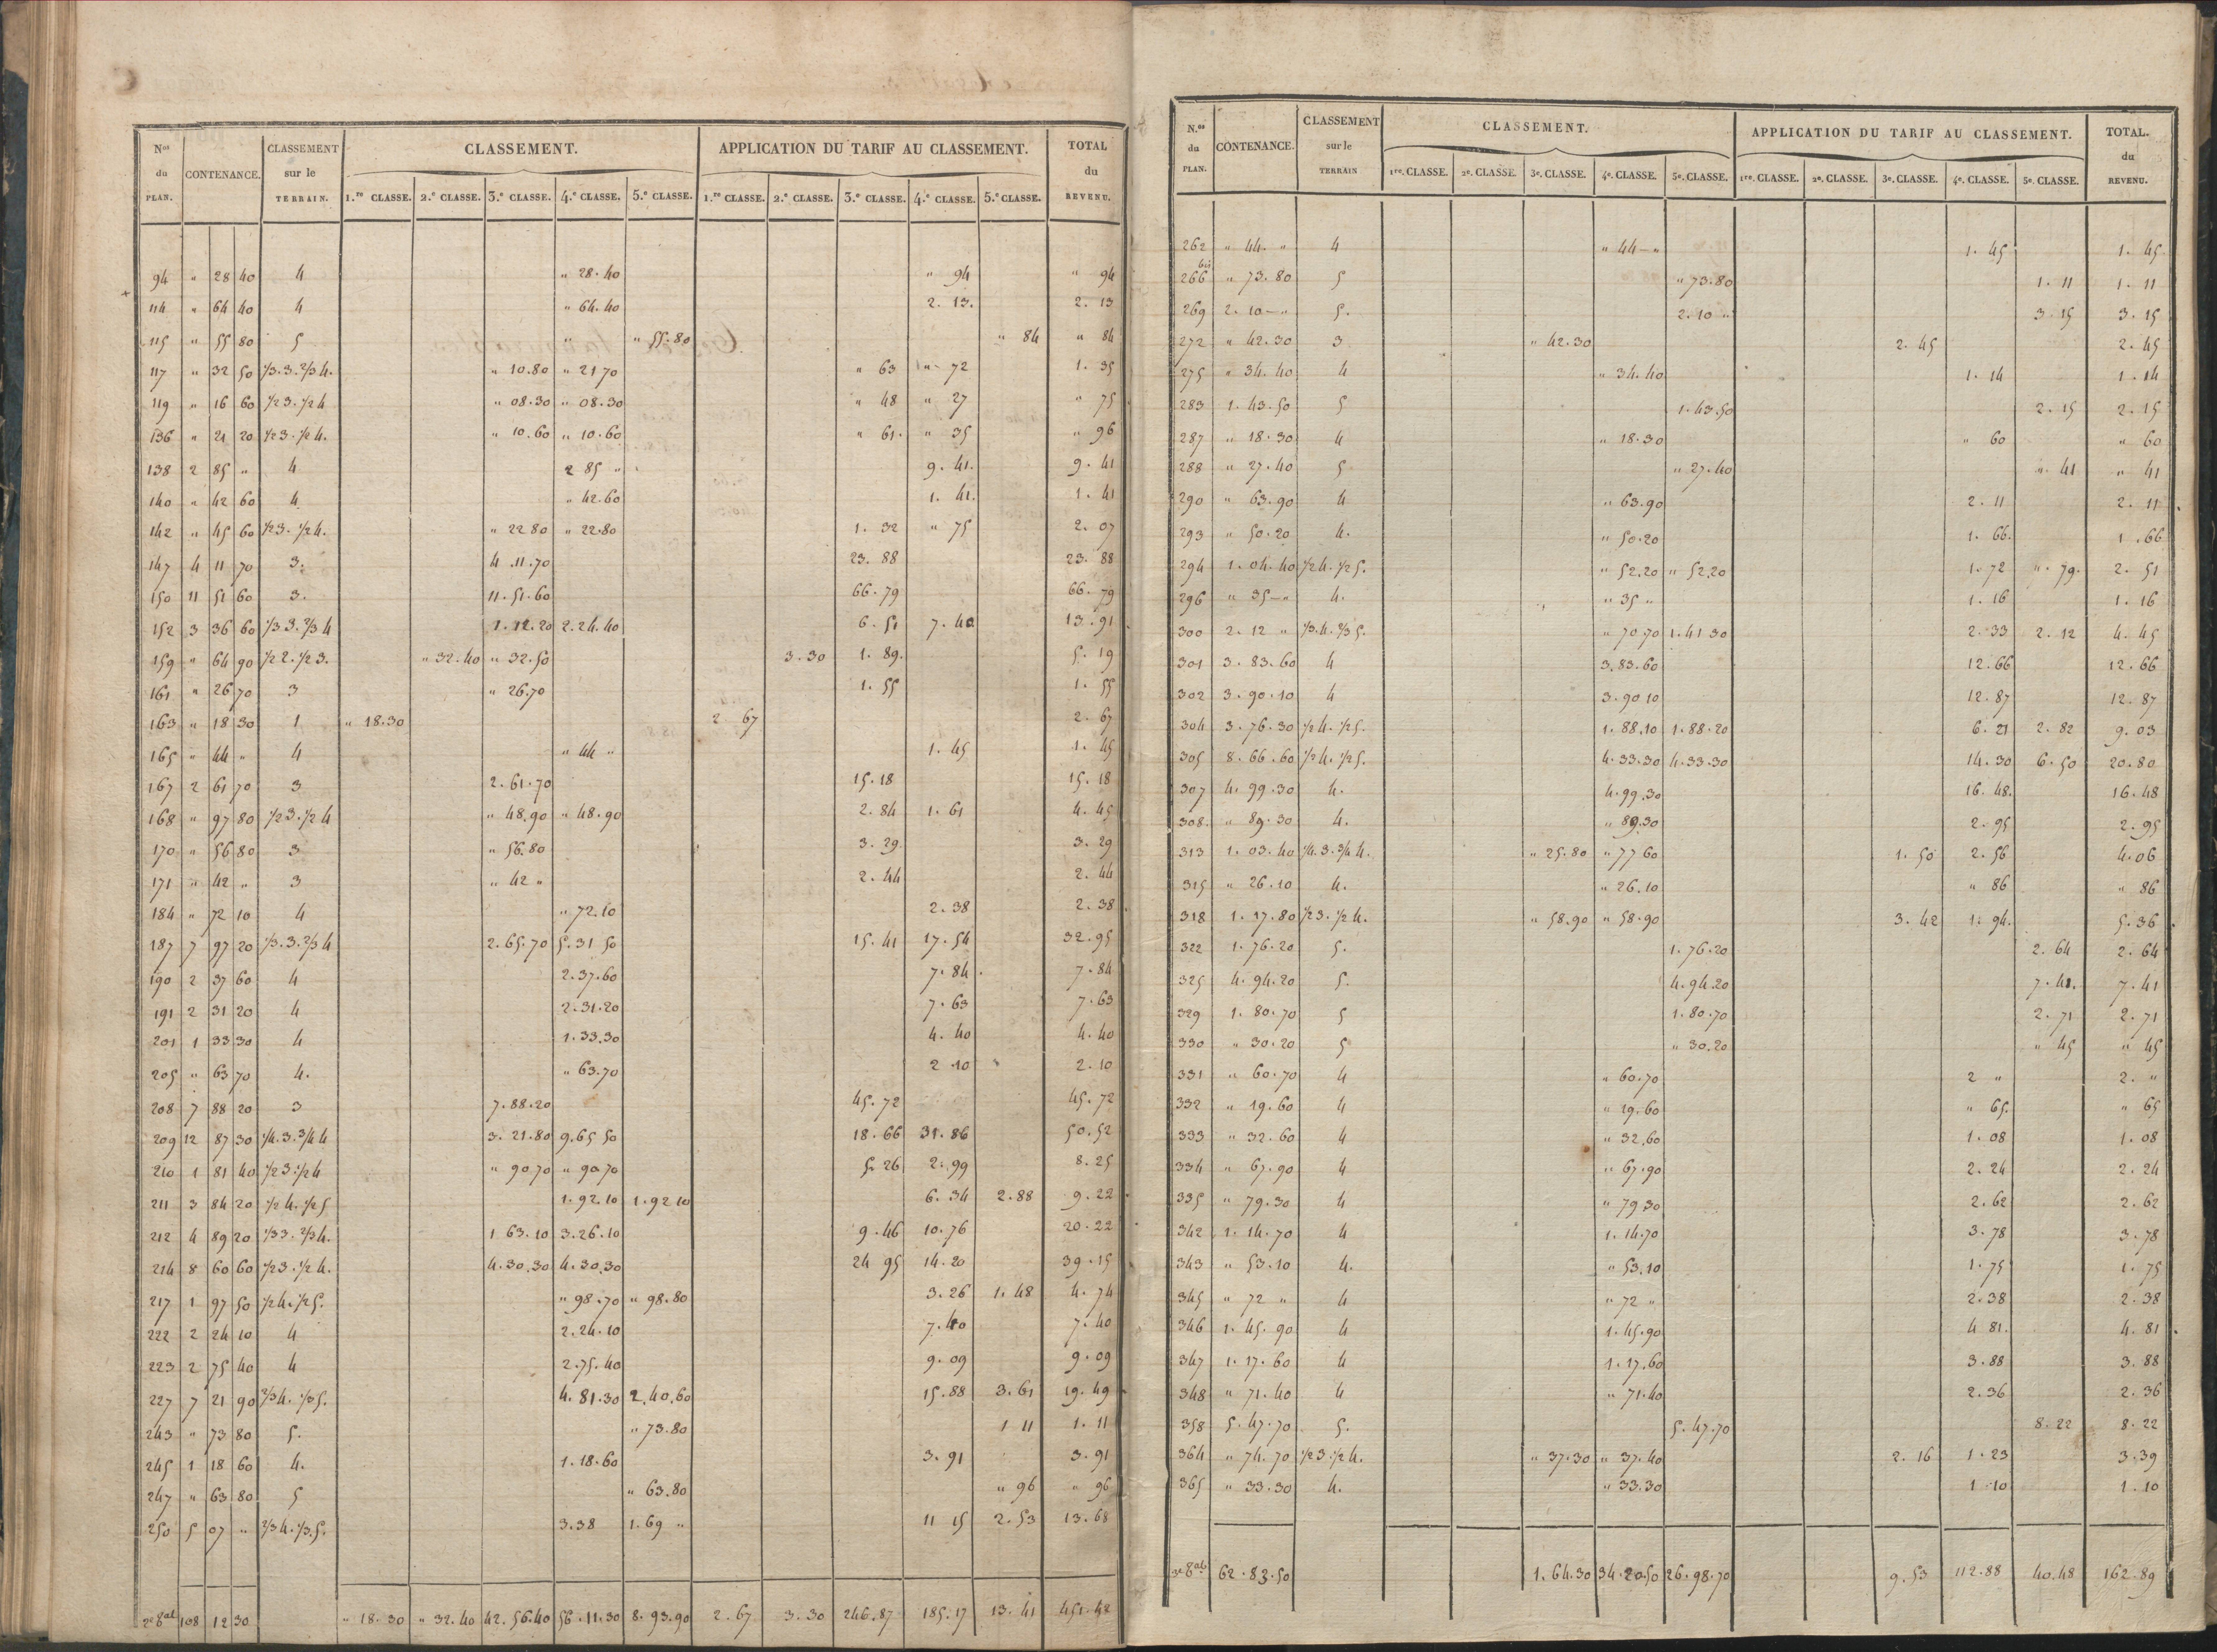 Nos du PLAN. CONTENANCE. CLASSEMENT sur le TERRAIN. CLASSEMENT. APPLICATION DU TARIF AU CLASSEMENT. TOTAL du REVENU.
1.re CLASSE. 2.e CLASSE. 3.e CLASSE. 4.e CLASSE. 5.e CLASSE. 1.re CLASSE. 2.e CLASSE. 3.e CLASSE. 4.e CLASSE. 5.e CLASSE.
94 " 28 40 4 " 28.40 " 94 " 94
114 " 64 40 4 " 64.40 2. 13. 2. 13
115 " 55 80 5 " " 55.80 " 84 " 84
117 " 32 50 1/3.3.2/3 4. " 10.80 " 21 70 " 63 " 72 1. 35
119 " 16 60 1/2 3.1/2 4 " 08.30 " 08.30 " 48 " 27 " 75
136 " 21 20 1/2 3.1/2 4. " 10.60 " 10.60 " 61. " 35 " 96
138 2 85 " 4 2 85 " 9. 41. 9. 41
140 " 42 60 4 " 42.60 1. 41. 1. 41
142 " 45 60 1/2 3.1/2 4. " 22 80 " 22.80 1. 32 " 75 2. 07
147 4 11 70 3. 4.11.70 23. 88 23. 88
150 11 51 60 3. 11.51.60 66.79 66.79
152 3 36 60 1/3 3.2/3 4 1.12.20 2.24.40 6.51 7.40 13.91
159 " 64 90 1/2 2.1/2 3. " 32.40 " 32.50 3.30 1. 89. 5. 19
161 " 26 70 3 " 26.70 1. 55 1. 55
163 " 18 30 1 " 18.30 2 67 2. 67
165 " 44 " 4 " 44 " 1. 45 1. 45
167 2 61 70 3 2.61.70 15.18 15.18
168 " 97 80 1/2 3.1/2 4 " 48.90 " 48.90 2. 84 1. 61 4. 45
170 " 56 80 3 " 56.80 3. 29. 3. 29
171 " 42 " 3 " 42 " 2.44 2. 44
184 " 72 10 4 " 72.10 2.38 2.38
187 7 97 20 1/3.3.2/3 4 2.65.70 5.31 50 15.41 17.54 32.95
190 2 37 60 4 2.37.60 7.84. 7.84
191 2 31 20 4 2.31.20 7.63 7.63
201 1 33 30 4 1.33.30 4. 40 4.40
205 " 63 70 4. " 63.70 2 10 2.10
208 7 88 20 3 7.88.20 45.72 45.72
209 12 87 30 1/4.3.3/4 4 3.21.80 9.65 50 18.66 31.86 50.52
210 1 81 40 1/2 3.1/2 4 " 90.70 " 90.70 5. 26 2.99 8.25
211 3 84 20 1/2 4.1/2 5 1.92.10 1.92 10 6. 34 2.88 9.22
212 4 89 20 1/3 3.2/3 4. 1 63.10 3.26.10 9.46 10.76 20.22
214 8 60 60 1/2 3.1/2 4. 4.30.30 4.30.30 24 95 14.20 39.15
217 1 97 50 1/2 4.1/2 5. " 98.70 " 98.80 3.26 1.48 4.74
222 2 24 10 4 2.24.10 7.40 7.40
223 2 75 40 4 2.75.40 9.09 9.09
227 7 21 90 2/3 4.1/3 5. 4.81.30 2.40.60 15.88 3.61 19.49
243 " 73 80 5. " 73.80 1 11 1. 11
245 1 18 60 4. 1.18.60 3.91 3.91
247 " 63 80 5 " 63.80 " 96 " 96
250 5 07 " 2/3 4.1/3.5. 3.38 1.69 " 11 15 2.53 13.68
108 12 30 " 18.30 " 32.40 42.56.40 56.11.30 8.93.90 2.67 3.30 246.87 185.17 13.41 451.42
N.os du PLAN. CONTENANCE. CLASSEMENT sur le TERRAIN CLASSEMENT. APPLICATION DU TARIF AU CLASSEMENT. TOTAL. du REVENU.
1re. CLASSE. 2e. CLASSE. 3e. CLASSE. 4e. CLASSE. 5e. CLASSE. 1re. CLASSE. 2e. CLASSE. 3e. CLASSE. 4e. CLASSE. 5e. CLASSE.
262 " 44. " 4 " 44 - " 1. 45 1. 45
266 bis " 73.80 5 " 73.80 1. 11 1. 11
269 2. 10 - " 5. 2.10 " 3.15 3.15
272 " 42.30 3 " 42.30 2. 45 2. 45
275 " 34.40 4 " 34.40 1.14 1.14
283 1.43.50 5 1.43.50 2.15 2.15
287 " 18.30 4 " 18.30 " 60 " 60
288 " 27.40 5 " 27.40 " 41 " 41
290 " 63.90 4 " 63.90 2.11 2.11
293 " 50.20 4. " 50.20 1.66. 1.66
294 1.04.40 1/2 4.1/2 5. " 52.20 " 52.20 1.72 ". 79. 2. 51
296 " 35 - " 4. " 35 " 1.16 1.16
300 2.12 " 1/3.4.2/3 5. " 70 70 1.41 30 2.33 2.12 4.45
301 3.83.60 4 3.83.60 12.66 12.66
302 3.90.10 4 3.90 10 12.87 12.87
304 3.76.30 1/2 4.1/2 5. 1.88.10 1.88.20 6.21 2.82 9.03
305 8.66.60 1/2 4.1/2 5. 4.33.30 4.33.30 14.30 6.50 20.80
307 4.99.30 4. 4.99.30 16.48. 16.48
308. " 89.30 4. " 89.30 2.95 2.95
313 1.03.40 1/4.3.3/4 4. " 25.80 " 77 60 1.50 2.56 4.06
315 " 26.10 4. " 26.10 " 86 " 86
318 1.17.80 1/2 3.1/2 4. " 58.90 " 58.90 3.42 1.94. 5.36
322 1.76.20 5. 1.76.20 2.64 2.64
325 4.94.20 5. 4.94.20 7.41. 7.41
329 1.80.70 5 1.80.70 2.71 2.71
330 " 30.20 5 " 30.20 " 45 " 45
331 " 60.70 4 " 60.70 2 " 2. "
332 " 19.60 4 " 19.60 " 65. " 65
333 " 32.60 4 " 32.60 1.08 1.08
334 " 67.90 4 " 67.90 2.24 2.24
335 " 79.30 4 " 79.30 2.62 2.62
342 1.14.70 4 1.14.70 3.78 3.78
343 " 53.10 4. " 53.10 1.75 1.75
345 " 72 " 4 " 72 " 2.38 2.38
346 1.45.90 4 1.45.90 4 81. 4.81
347 1.17.60 4 1.17.60 3.88 3.88
348 " 71.40 4 " 71.40 2.36 2.36
358 5.47.70 5. 5.47.70 8.22 8.22
364 " 74.70 1/2 3.1/2 4. " 37.30 " 37.40 2.16 1.23 3.39
365 " 33.30 4. " 33.30 1.10 1.10
62.83.50 1.64.30 34.20.50 26.98.70 9.53 112.88 40.48 162.89